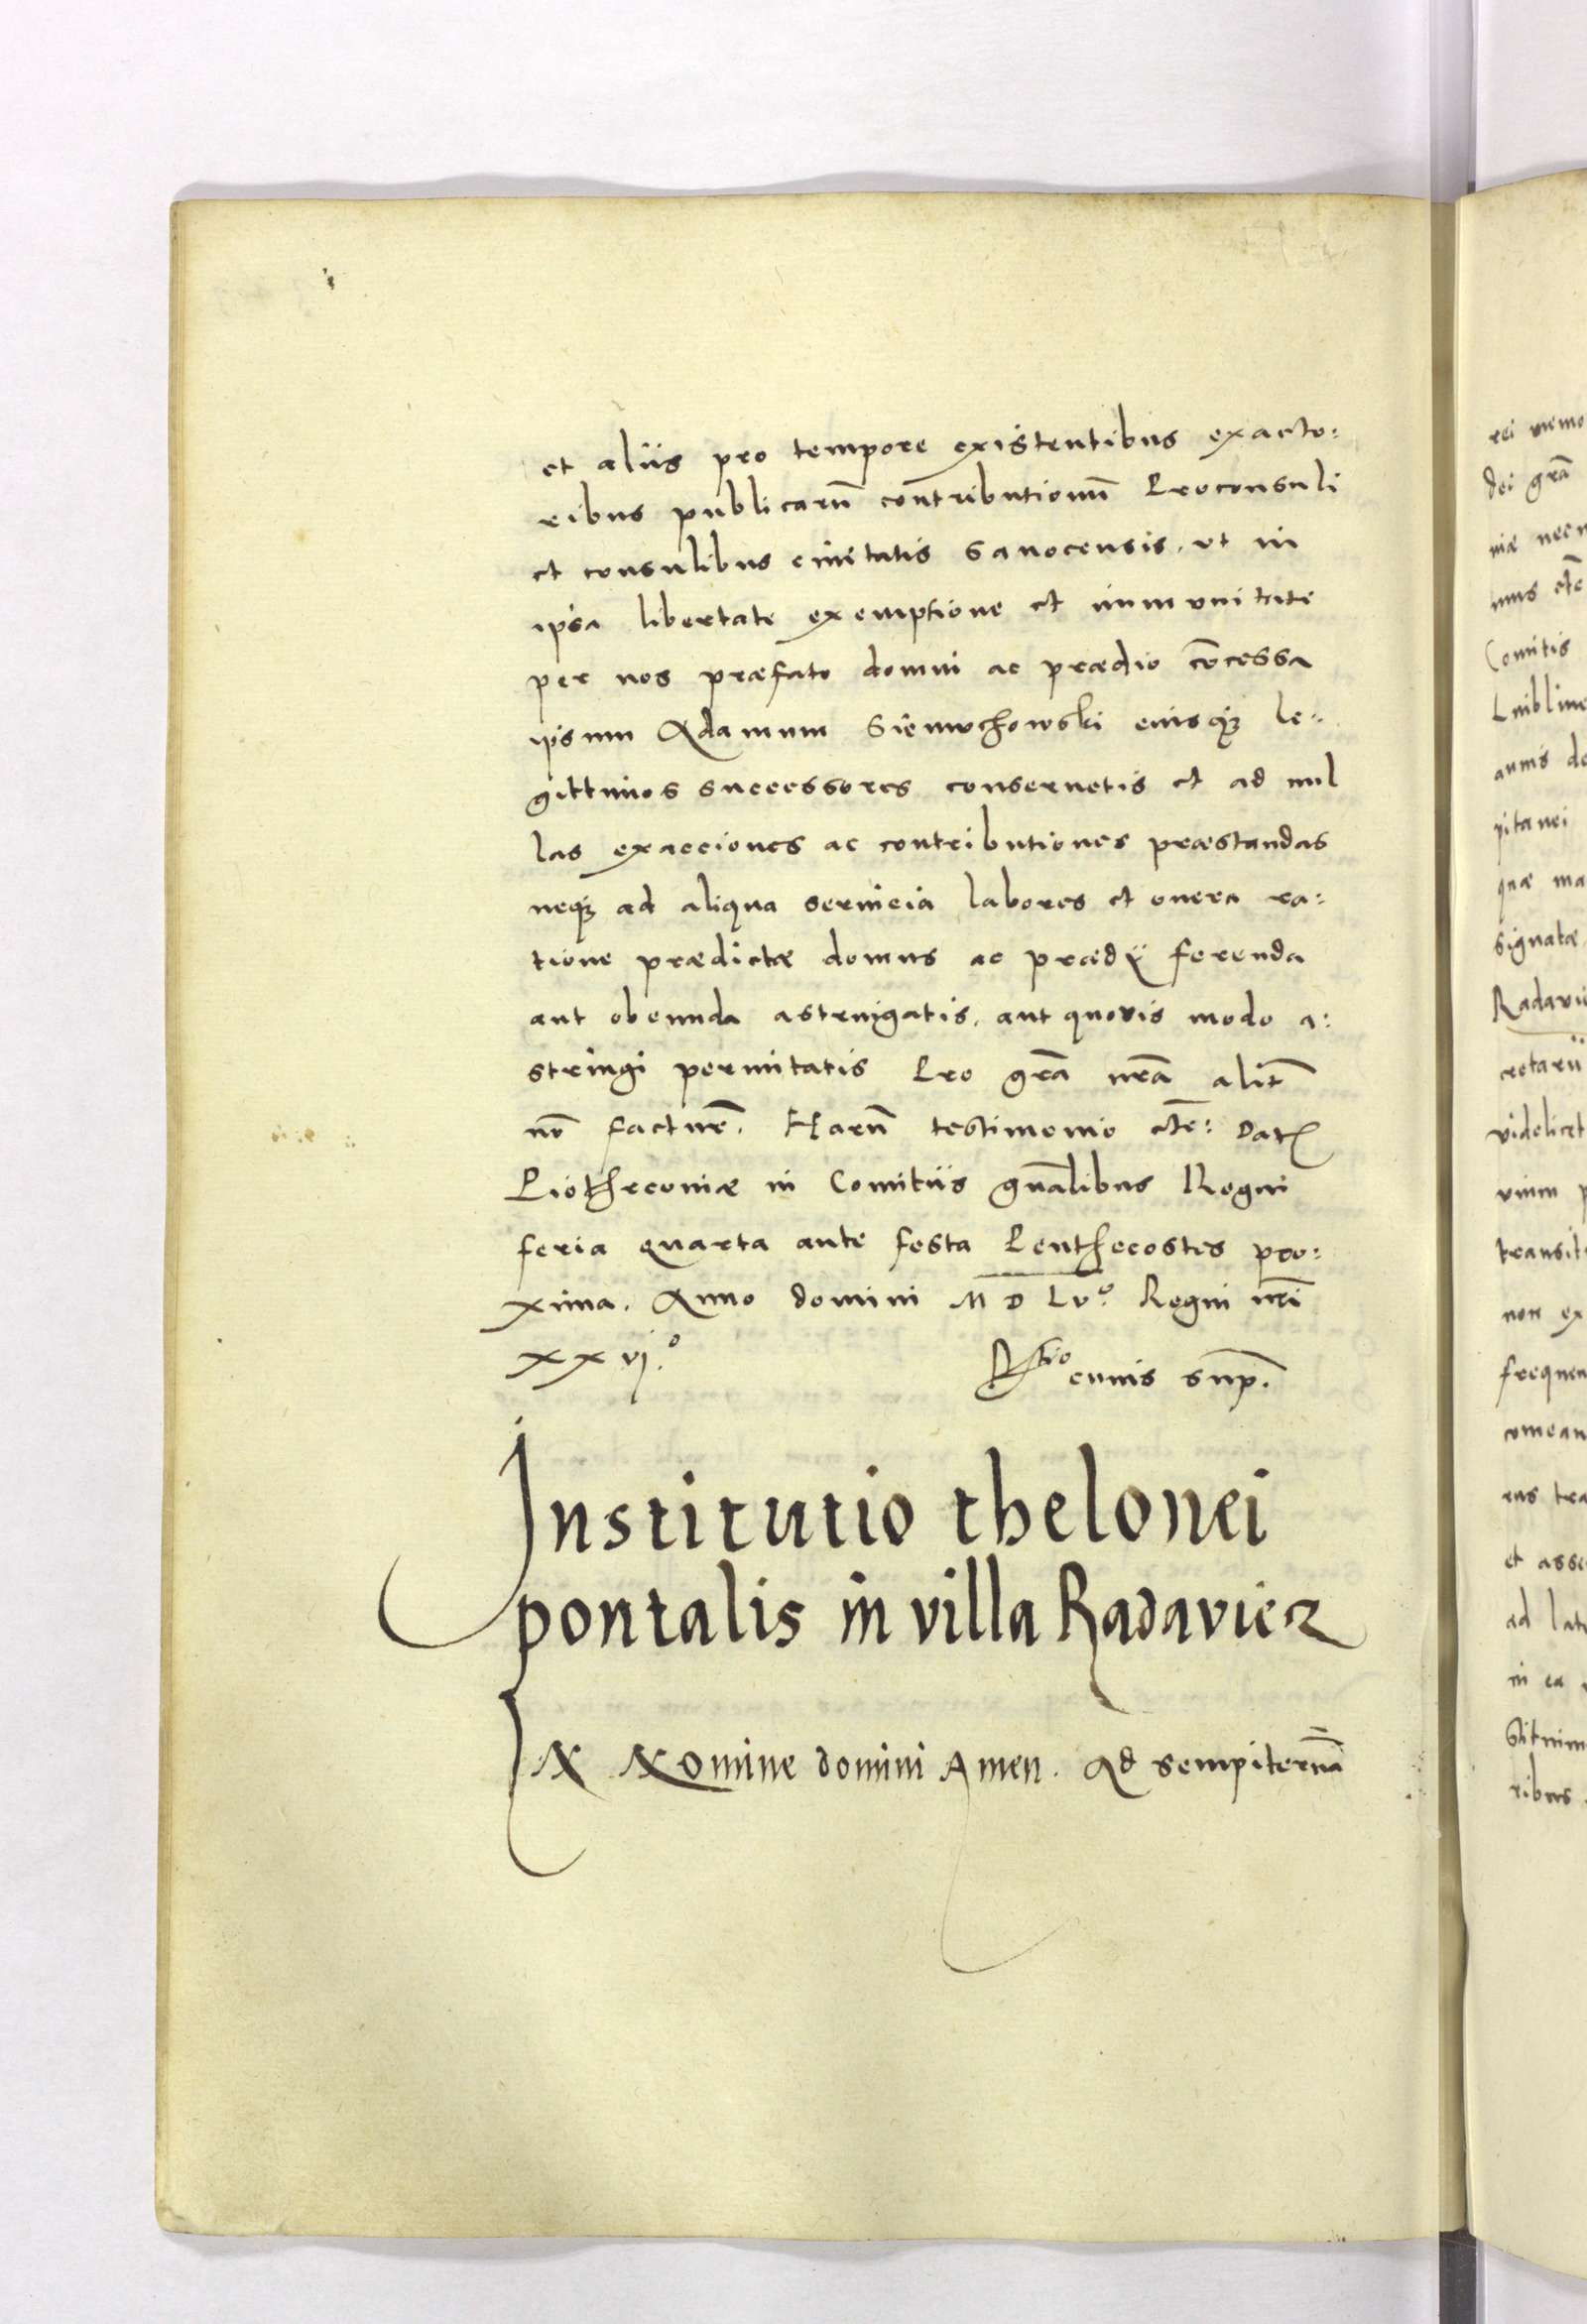 et aliis pro tempore existentibus exacto:
ribus publicarū contributionū Proconsuli
et consulibus civitatis Sanocensis, ut in
ipsa libertate exemptione et immunitate
per nos præfato domui ac prædio cōcessa
ipsum Adamum Siemuchowski eiusqꝫ le:
gittimos successores conservetis et ad nul
las exacciones ac contributiones præstandas
neqꝫ ad aliqua servicia labores et onera ra:
tione prædictæ domus ac prædij ferenda
aut obeunda astringatis, aut quovis modo a:
stringi permitatis Pro grā nrā alit̄
nō facturi. Harū testimonio etc: Dat
Piothrcoviæ in Comitiis gnālibus Regni
feria quarta ante festa Penthecostes pro:
xima. Anno domini M D Lv.º Regni nrī
xxvj.º
Rtio cuius sup.
Institutio thelonei
pontalis in villa Radaviez
IN Nomine domini Amen. Ad sempiternā
rei memo
dei grā
niæ necn
mus etc
Comitis
Lubline
pitanei
quæ ma
signatæ
Radavie
cretarii
videlicet
vium p
transit
non ex
frequen
comean
ens tra
et asse
ad lat
in ea
ribus